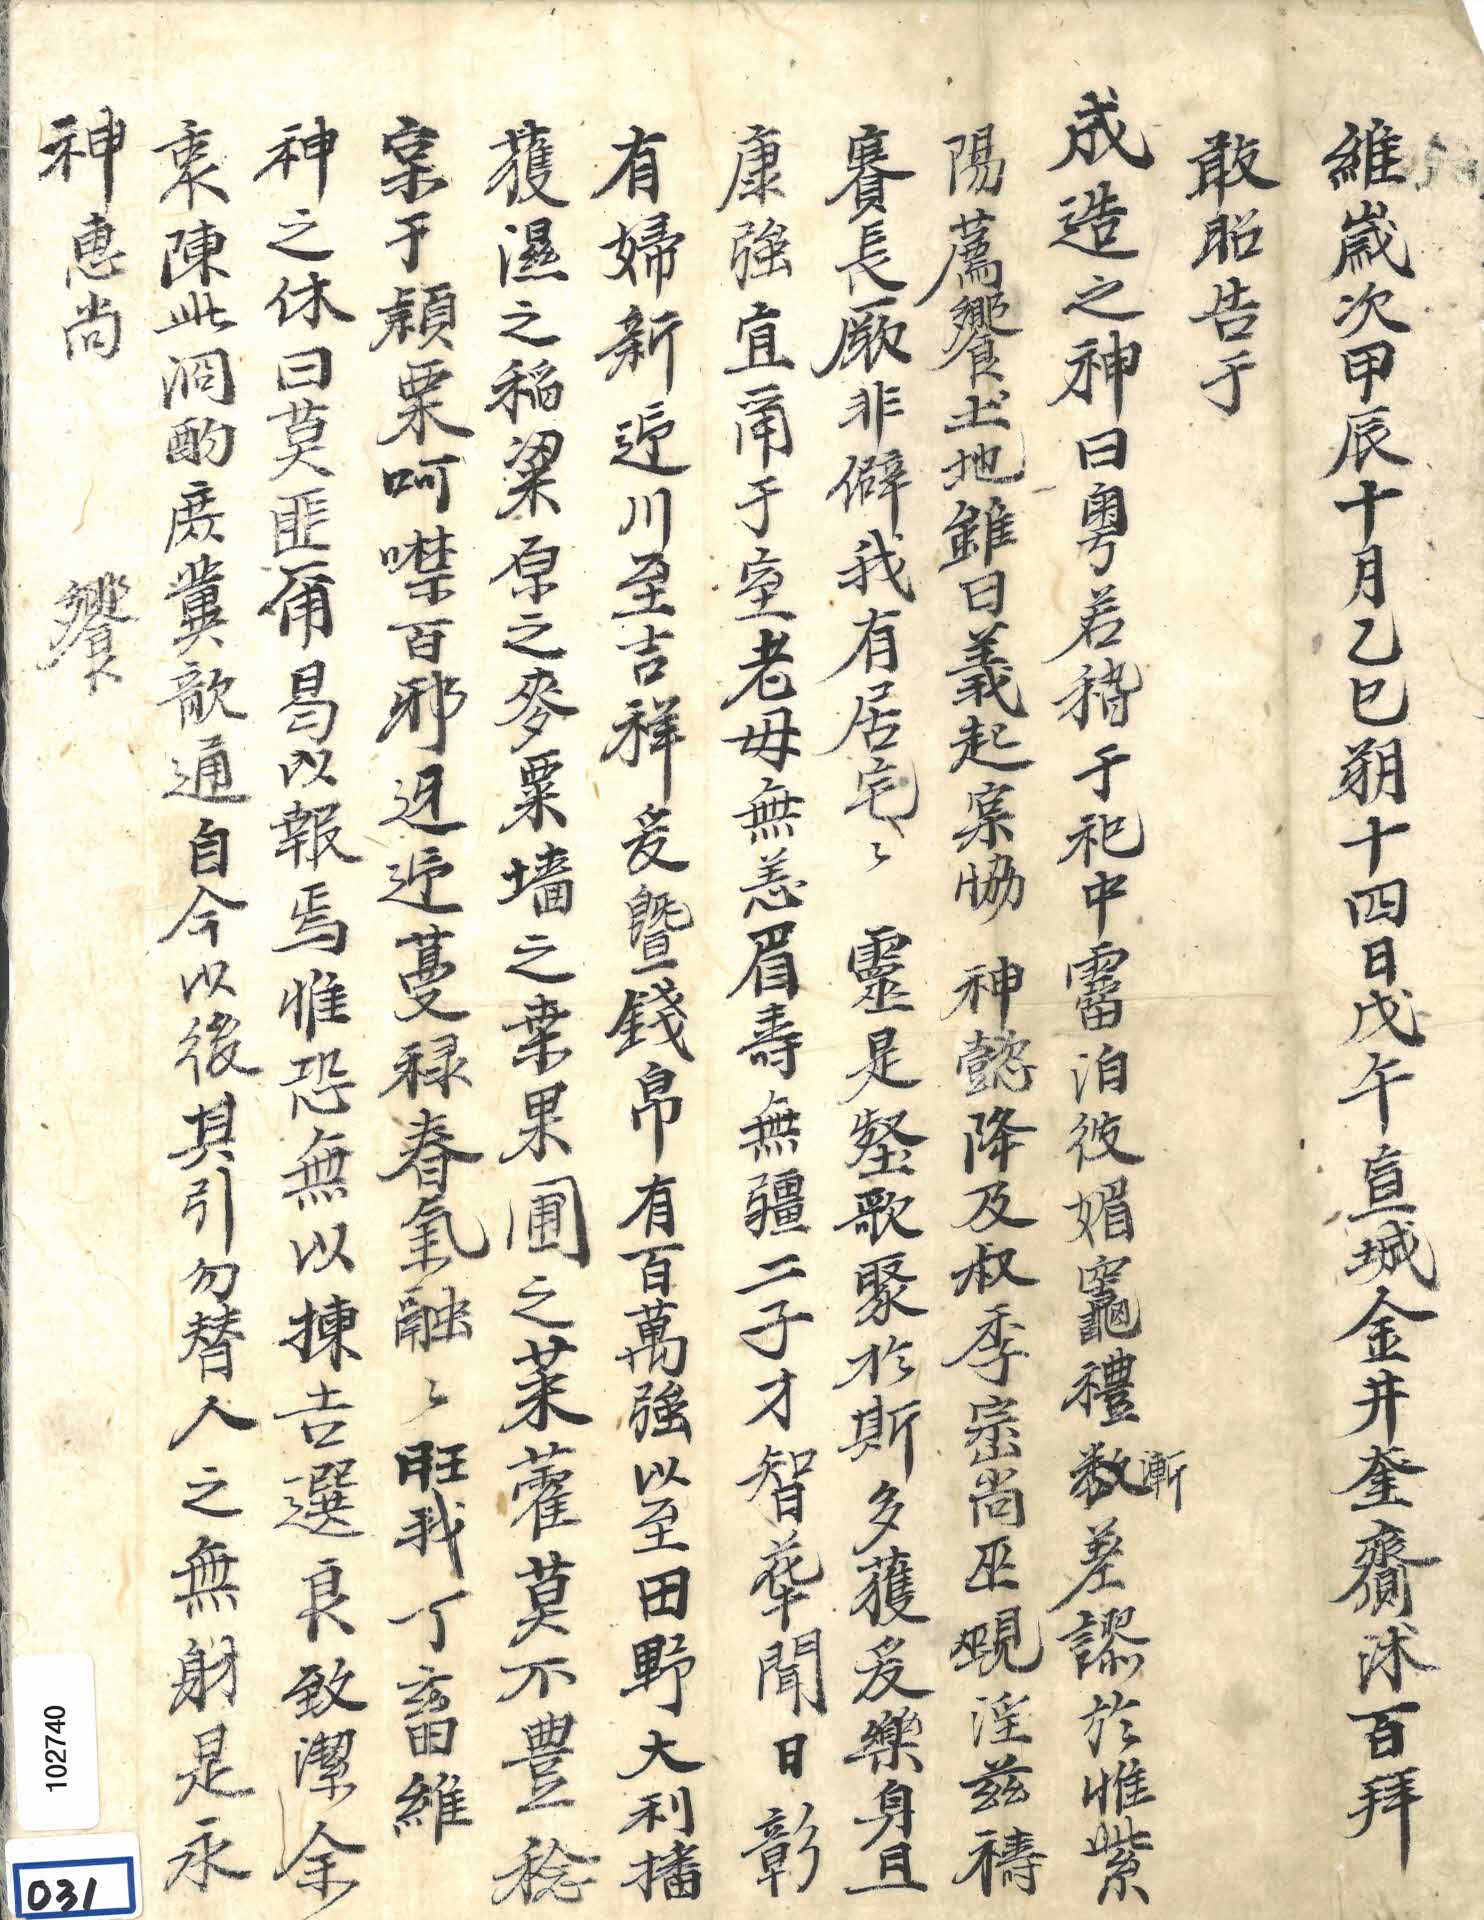 維歲次甲辰十月乙巳朔十四日戊午宣城金井奎齋沐百拜
敢昭告于
成造之神曰粤若稽于祀中霤洎彼媚竈禮數漸差謬於惟紫
陽薦饗土地雖曰義起寔協 神懿降及叔季崇尚巫覡淫茲禱
賽長厥非僻我有居宅〻 靈是墍歌聚於斯多獲爰樂身且
康強宜甯于室老母無恙眉壽無疆二子才智華聞日彰
有婦新迎川至吉祥爰曁錢帛有百萬強以至田野大利播
穫濕之稻粱原之麥粟墻之桒果圃之菜藿莫不豊稔
寔于穎栗呵噤百邪迓迎蔓祿春氣融〻旺我丁畜維
神之休曰莫匪甭曷以報焉惟恐無以揀吉選良致潔余
衷陳此泂酌庶冀歆通自今以後其引勿替人之無射是永
神惠尚 饗
102740
031